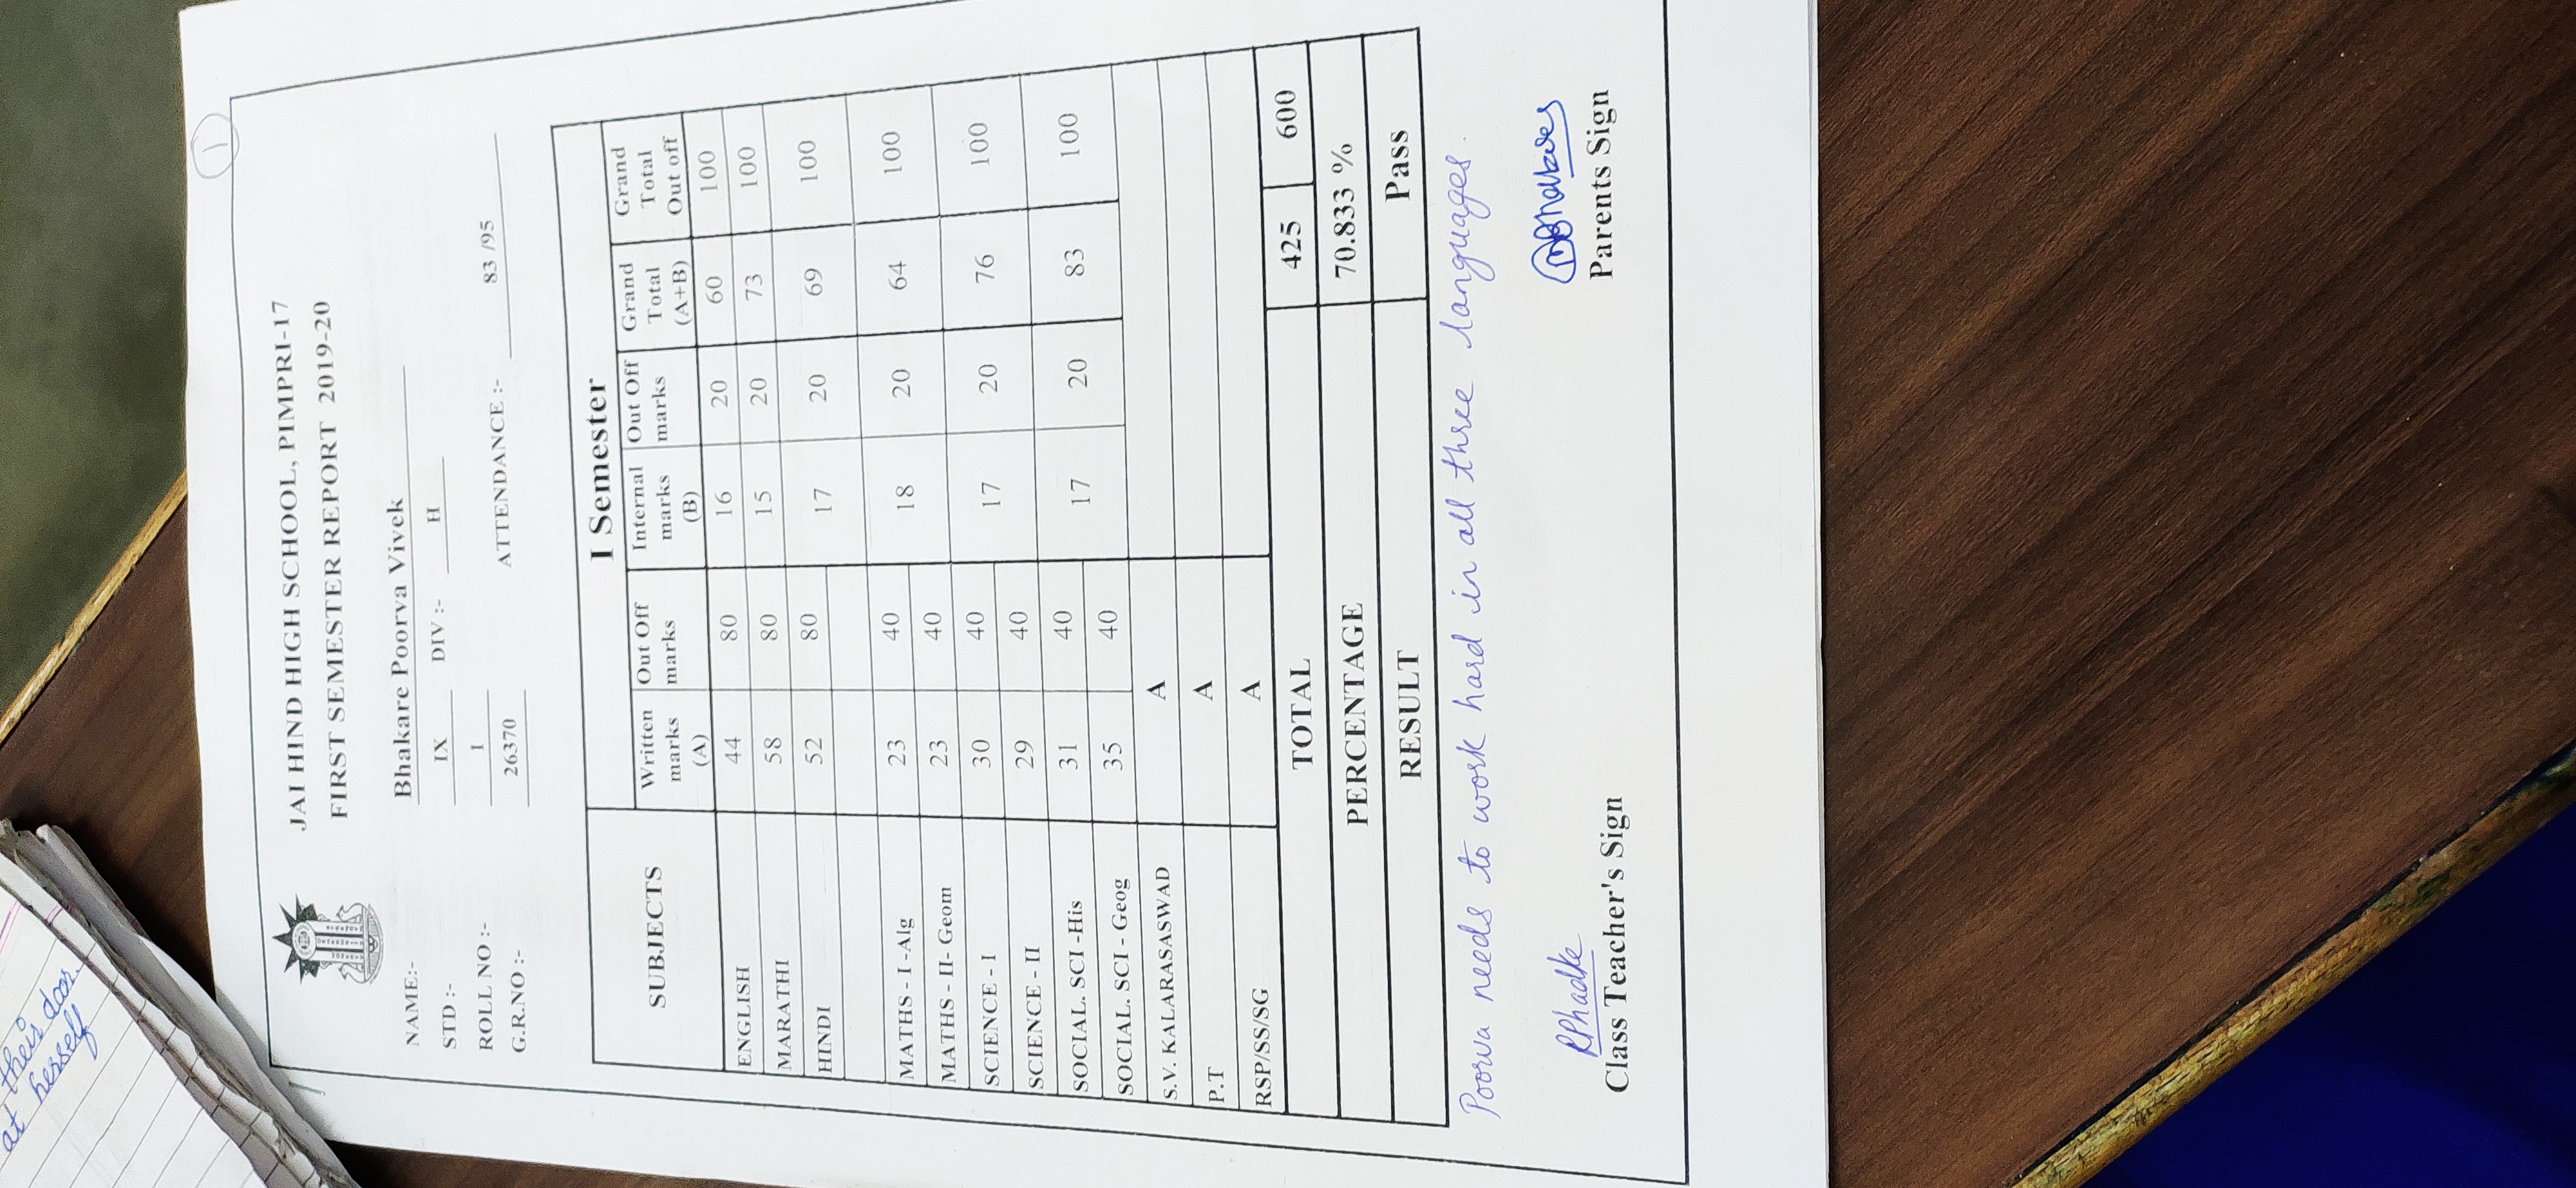 1
JAI HIND HIGH SCHOOL, PIMPRI-17
FIRST SEMESTER REPORT 2019-20
NAME:- Bhakare Poorva Vivek
STD :- IX DIV :- H
ROLL NO :- 1 ATTENDANCE :- 83 /95
G.R.NO :- 26370
I Semester
SUBJECTS Written marks (A) Out Off marks Internal marks (B) Out Off marks Grand Total (A+B) Grand Total Out off
ENGLISH 44 80 16 20 60 100
MARATHI 58 80 15 20 73 100
HINDI 52 80 17 20 69 100
MATHS - I -Alg 23 40 18 20 64 100
MATHS - II- Geom 23 40
SCIENCE - I 30 40 17 20 76 100
SCIENCE - II 29 40
SOCIAL. SCI -His 31 40 17 20 83 100
SOCIAL. SCI - Geog 35 40
S.V. KALARASASWAD A
P.T A
RSP/SS/SG A
TOTAL 425 600
PERCENTAGE 70.833 %
RESULT Pass
Poorva needs to work hard in all three languages.
RPhadke
Class Teacher's Sign Parents Sign
their door
at herself